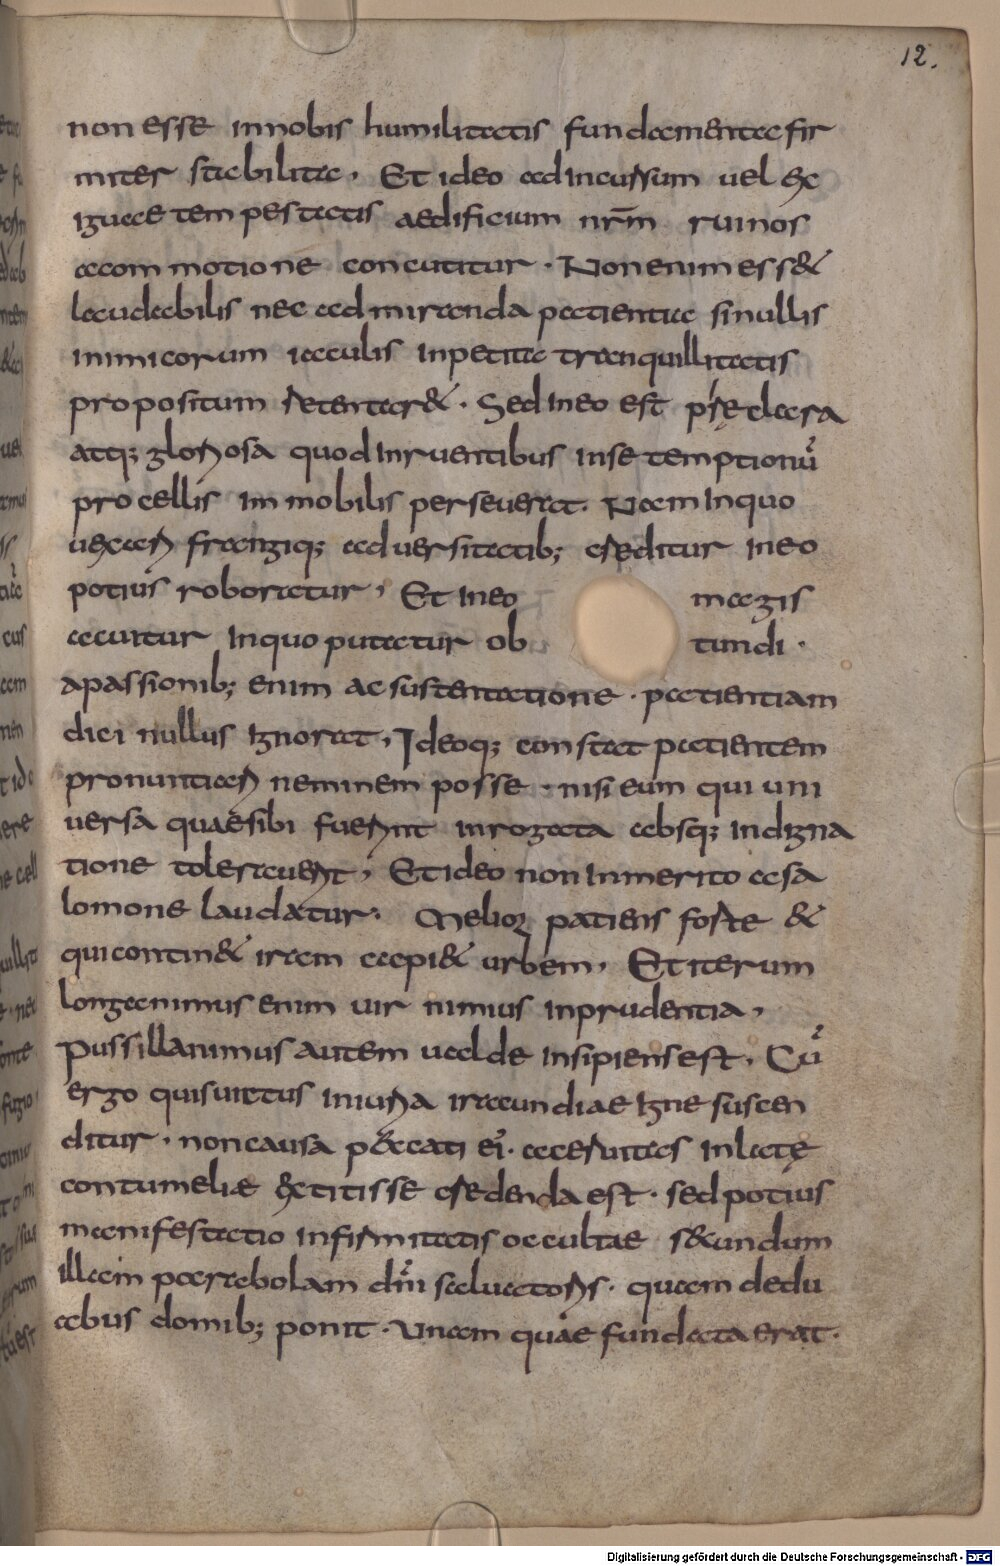 12.
non esse innobis humilitatis fundamentafir
miter stabilita, Et ideo adincursum uel ex
iguae tempestatis aedificium nrm̄ ruinos
acommotione concutitur. Nonenim ess&
laudabilis nec admiranda patientia sinullis
inimicorum iaculis inpetita tranquillitatis
propositum retentar&. Sed ineo est preclara
atq; gloriosa quod inruentibus inse temptionū
procellis immobilis perseuerat. Nam inquo
uexari frangiq; aduersitatib; creditur ineo
potius roboratur, Et ineo magis
acuitur inquo putatur ob tundi.
apassionib; enim ac sustentatione. patientiam
dici nullus ignorat, Ideoq; constat patientem
pronuntiari neminem posse. nisi eum qui uni
uersa quaesibi fuerint inrogata absq; indigna
tione tolerauerit, Et ideo non inmerito asa
lomone laudatur. Melior patiens forte &
qui contin& iram capi& urbem, Et iterum
longanimus enim uir nimius inprudentia,
Pussillanimus autem ualde insipiens est, Cū
ergo quis uictus iniuria iracundiae igne succen
ditur, non causa p&ccati ei. aceruitas inlatę
contumeliae extitisse credenda est. sed potius
manifestatio infirmitatis occultae s&cundum
illam parabolam dn̄i saluatoris. quam dedu
abus domib; ponit. Unam quae fundata erat.
Digitalisierung gefördert durch die Deutsche Forschungsgemeinschaft - DFG